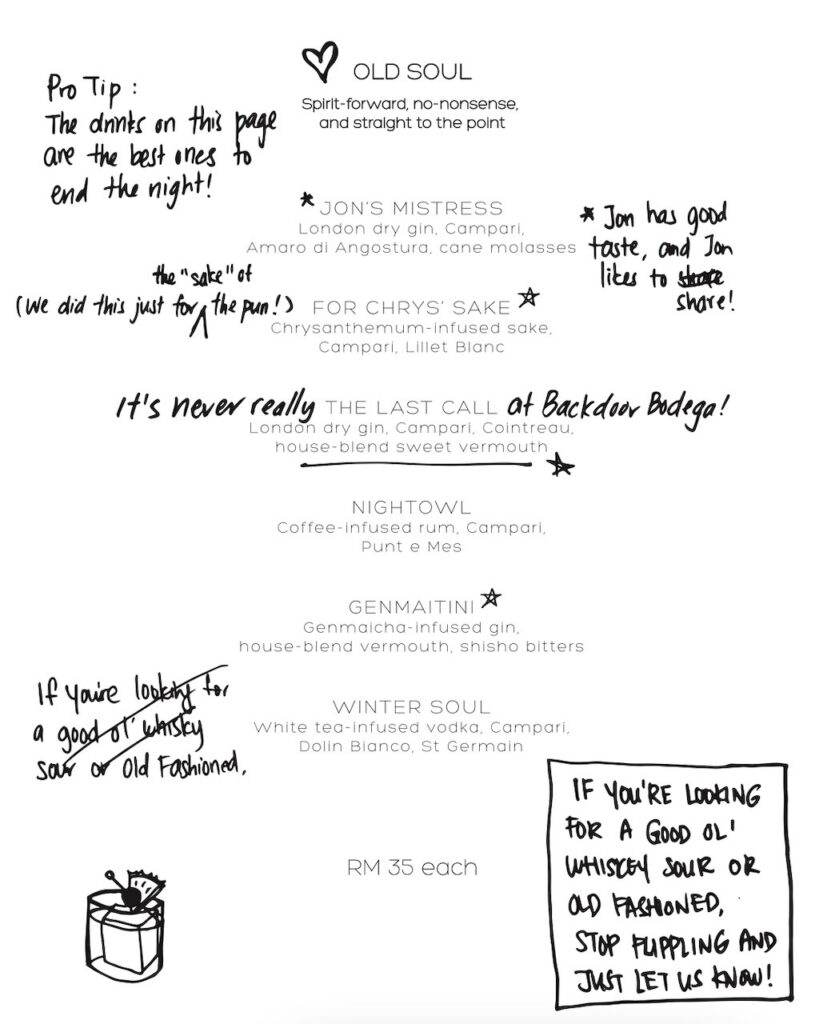 OLD SOUL
Spirit-forward, no-nonsense,
and straight to the point
Pro Tip :
The drinks on this page
are the best ones to
end the night!
JON'S MISTRESS
London dry gin, Campari,
Amaro di Angostura, cane molasses
Jon has good
taste, and Jon
likes to share
share!
the "sake" of
(We did this just for the pun!)
FOR CHRYS' SAKE
Chrysanthemum-infused sake,
Campari, Lillet Blanc
It's never really THE LAST CALL at Backdoor Bodega!
London dry gin, Campari, Cointreau,
house-blend sweet vermouth
NIGHTOWL
Coffee-infused rum, Campari,
Punt e Mes
GENMAITINI
Genmaicha-infused gin,
house-blend vermouth, shisho bitters
WINTER SOUL
White tea-infused vodka, Campari,
Dolin Bianco, St Germain
If you're looking for
a good ol' whisky
sour or Old Fashioned,
RM 35 each
IF YOU'RE LOOKING
FOR A GOOD OL'
WHISKEY SOUR OR
OLD FASHIONED,
STOP FLIPPLING AND
JUST LET US KNOW!